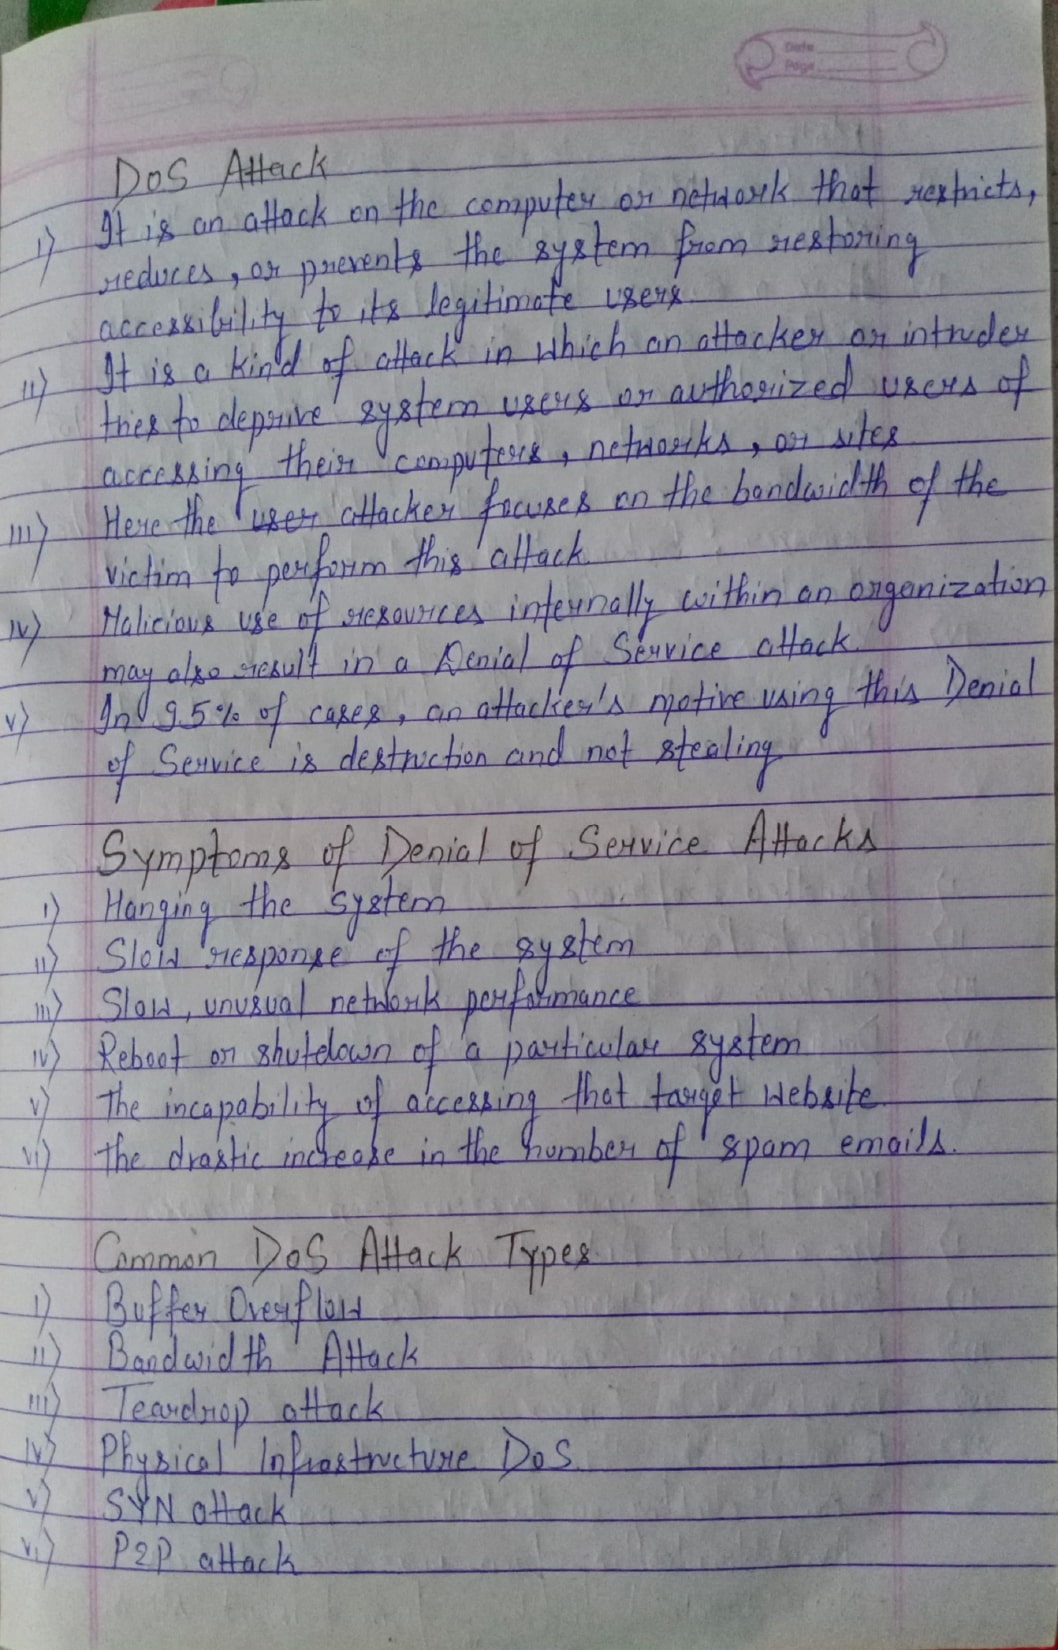 Date
Page
DoS Attack
i) It is an attack on the computer or network that restricts,
reduces, or prevents the system from restoring
accessibility to its legitimate users.
ii) It is a kind of attack in which an attacker or intruder
tries to deprive system users or authorized users of
accessing their computers, networks, or sites.
iii) Here the user attacker focuses on the bandwidth of the
victim to perform this attack.
iv) Malicious use of resources internally within an organization
may also result in a Denial of Service attack.
v) In 95% of cases, an attacker's motive using this Denial
of Service is destruction and not stealing
Symptoms of Denial of Service Attacks
i) Hanging the system
ii) Slow response of the system
iii) Slow, unusual network performance
iv) Reboot or shutdown of a particular system
v) The incapability of accessing that target website.
vi) the drastic increase in the number of spam emails.
Common DoS Attack Types
i) Buffer Overflow
ii) Bandwidth Attack
iii) Teardrop attack
iv) Physical Infrastructure DoS
v) SYN attack
vi) P2P attack